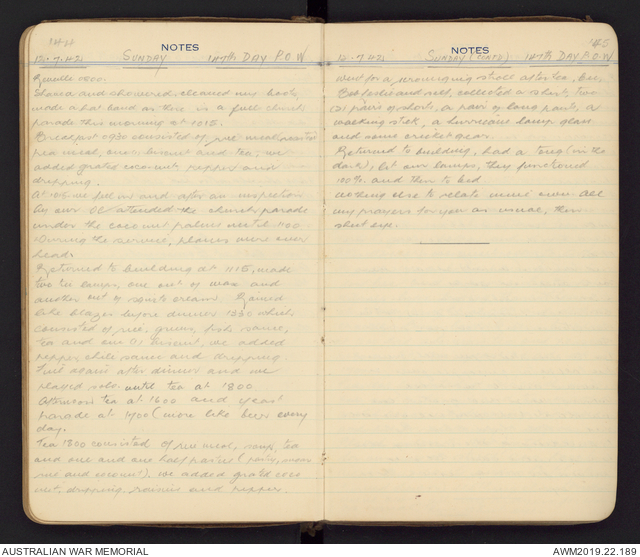 144
NOTES
12.7.42 SUNDAY 147TH DAY P.O.W
Reveille 0800.
Shaved and showered, cleaned my boots,
made a hat band as there is a full church
parade this morning at 1015.
Breakfast 0930 consisted of rice meal
pea meal, one biscuit and tea, we
added grated coconut pepper and
dripping.
At 1015 we fell in and after an inspection
by our OC attended the church parade
under the coconut palms until 1100
During the service, planes were over
head.
Returned to building at 1115, made
two tin lamps, one out of wax and
another out of cream. Rained
like blazes before dinner 1330 which
consisted of rice, greens, fish sauce,
tea and one biscuit, we added
pepper chili sauce and dripping.
again after dinner and we
played solo until tea at 1800.
Afternoon tea at 1600 and yeast
parade at 1700 (more like beer every
day.
Tea 1800 consisted of rice meal, soup, tea
and one and one half pasties (
rice and coconut). we added grated coco
nut, dripping, and pepper.
145
NOTES
12.7.42 SUNDAY (CONTD) 147TH DAY P.O.W
Went for a scrounging stroll after tea,
and self, collected a shirt, two
pairs of shorts, a pair of long pants, a
walking stick, a hurricane lamp glass
and some cricket gear.
Returned to building, had a (in the
dark), lit our lamps, they functioned
100% and then to bed
Nothing else to relate sweet All
my prayers for you as usual,
AUSTRALIAN WAR MEMORIAL
AWM2019.22.189